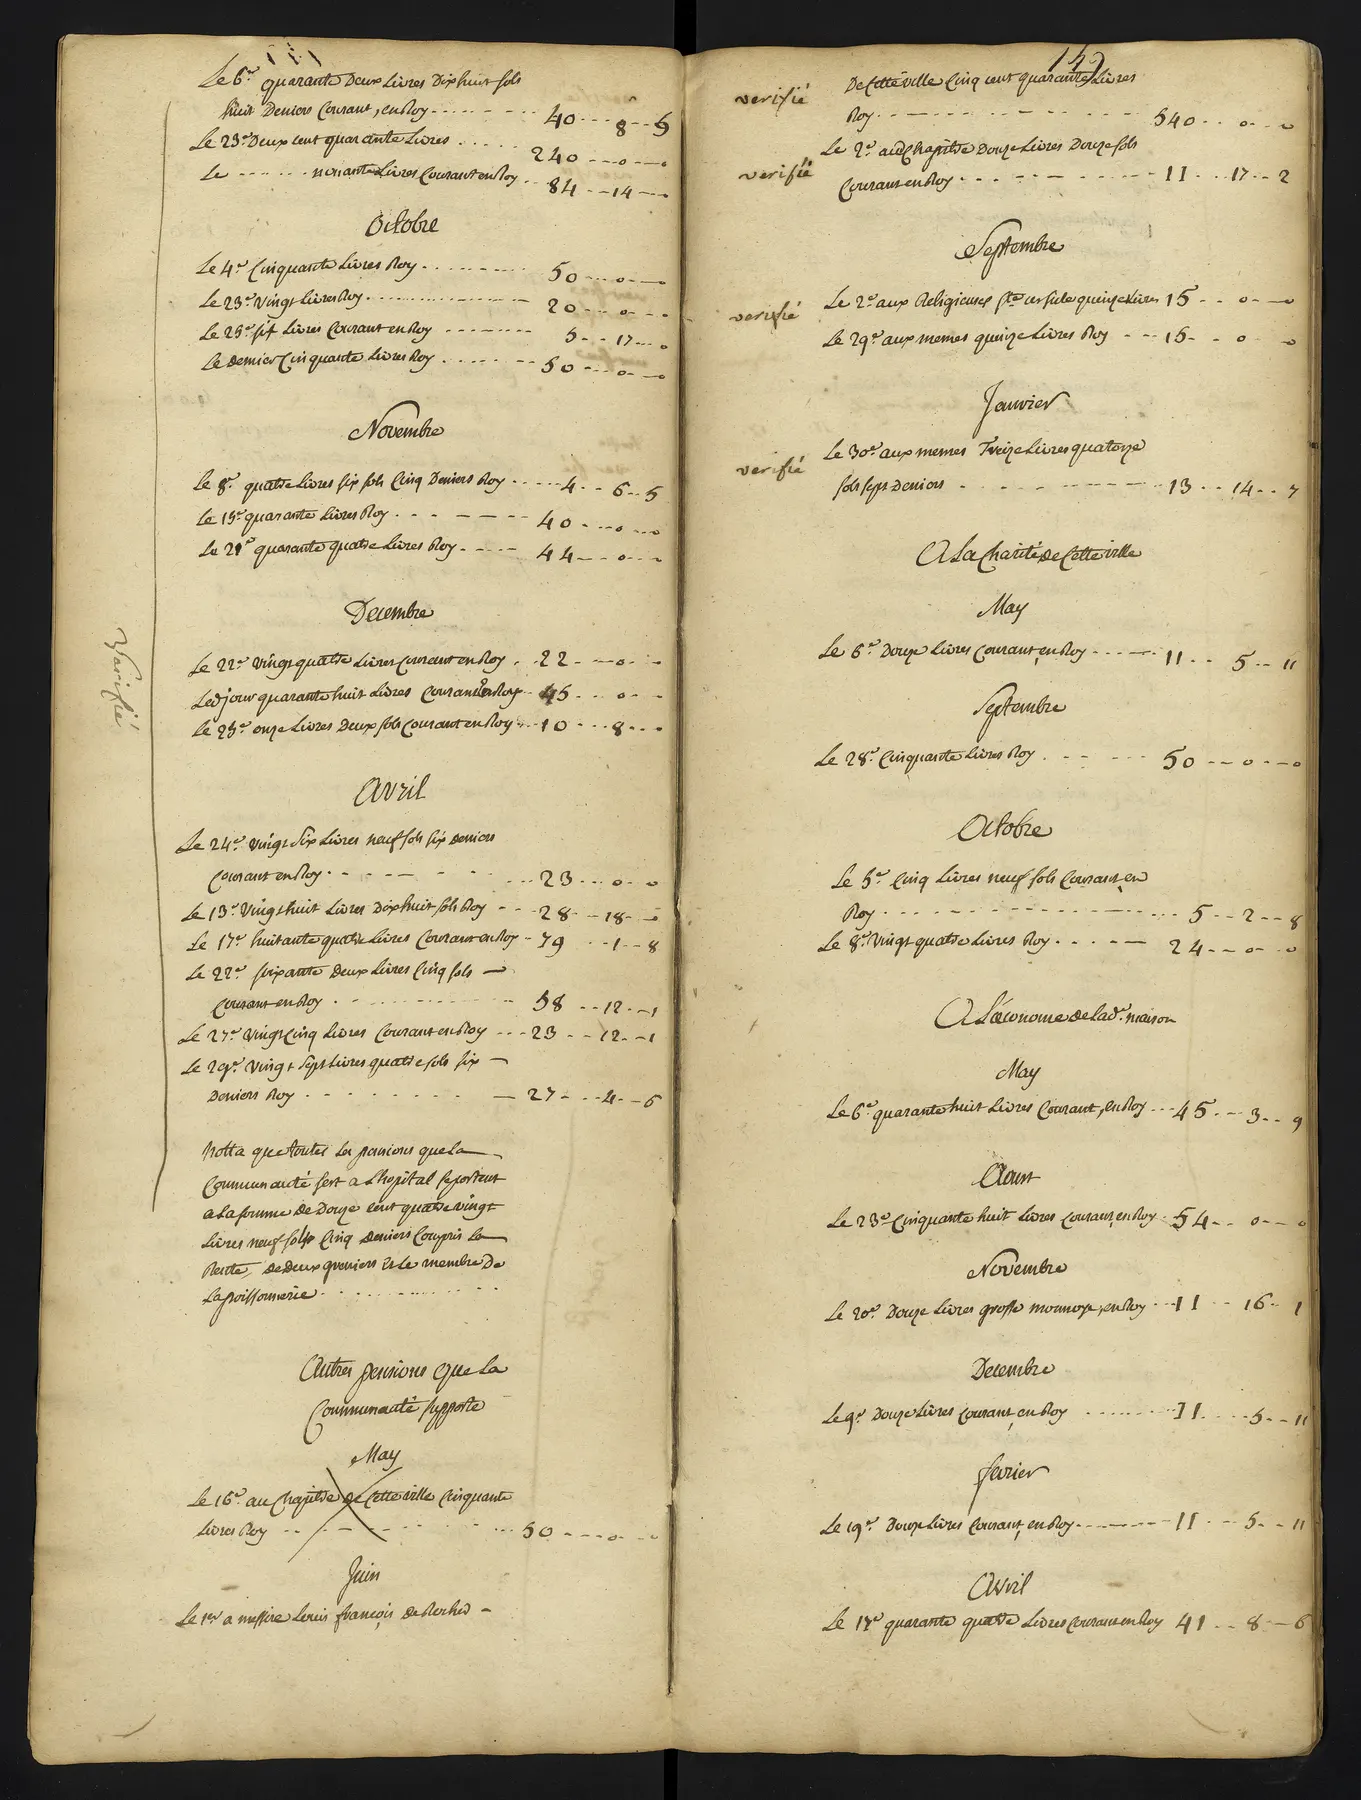 Le 6.e quarante Deux Livres Dix huit sols
huit Deniers Courant, en Roy 40 8 5
Le 23.e Deux cent quarante Livres 240 0 0
Le nonante Livres Courant en Roy 84 14
Octobre
Le 4.e Cinquante Livres Roy 50 0 0
Le 23.e Vingt Livres Roy 20 0 0
Le 25.e six Livres Courant en Roy 5 17 0
Le dernier Cinquante Livres Roy 50 0 0
Novembre
Le 8.e quatre Livres six sols Cinq Deniers Roy 4 6 5
Le 15.e quarante Livres Roy 40 0 0
Le 21.e quarante quatre Livres Roy 44 0
Decembre
Le 22.e Vingt quatre Livres Courant en Roy 22 0
Led jour quarante huit Livres Courant en Roy 45 0
Le 23.e onze Livres Deux sols Courant en Roy 10 8
Avril
Le 24.e Vingt Six Livres neuf sols six deniers
Courant en Roy 23 0 0
Le 13.e Vingt huit Livres Dix huit sols Roy 28 18
Le 17.e huitante quatre Livres Courant en Roy 79 1 8
Le 22.e soixante Deux Livres Cinq sols
Courant en Roy 58 12 1
Le 27.e Vingt Cinq Livres Courant en Roy 23 12 1
Le 29.e Vingt Sept Livres quatre sols six
Deniers Roy 27 4 6
Varifié
Notta que toutes les pensions que la
Communauté sert a L'hopital se portent
a La somme de Douze cent quatre vingt
Livres neuf sols Cinq Deniers Compris La
Rente de deux greniers et Le membre De
La poissonnerie
Autres pensions que La
Communauté supporte
May
Le 16.e au Chapitre de Cette ville Cinquante
Livres Roy 50 0
Juin
Le 1er a messire Louis françois de
verifié
De Cette ville Cinq cent quarante Livres
Roy 540 0 0
verifié
Le 2.e aud Chapitre Douze Livres Douze sols
Courant en Roy 11 17 2
Septembre
verifié
Le 2.e aux Religieuses Ste ursule quinze Livres 15 0 0
Le 29.e aux memes quinze Livres Roy 15 0 0
Janvier
verifié
Le 30.e aux memes Treize Livres quatorze
sols sept Deniers 13 14 7
A La Charité de Cette ville
May
Le 6.e Douze Livres Courant, en Roy 11 5 11
Septembre
Le 28.e Cinquante Livres Roy 50 0 0
Octobre
Le 5.e Cinq Livres neuf sols Courant en
Roy 5 2 8
Le 8.e Vingt quatre Livres Roy 24 0 0
A L'économe de Lad.e maison
May
Le 6.e quarante huit Livres Courant, en Roy 45 3 9
Aoust
Le 23.e Cinquante huit Livres Courant, en Roy 54 0 0
Novembre
Le 20.e Douze Livres grosse monnoye, en Roy 11 16 1
Decembre
Le 9.e Douze Livres Courant, en Roy 11 5 11
fevrier
Le 19.e Douze Livres Courant, en Roy 11 5 11
Avril
Le 17.e quarante quatre Livres Courant en Roy 41 8 6